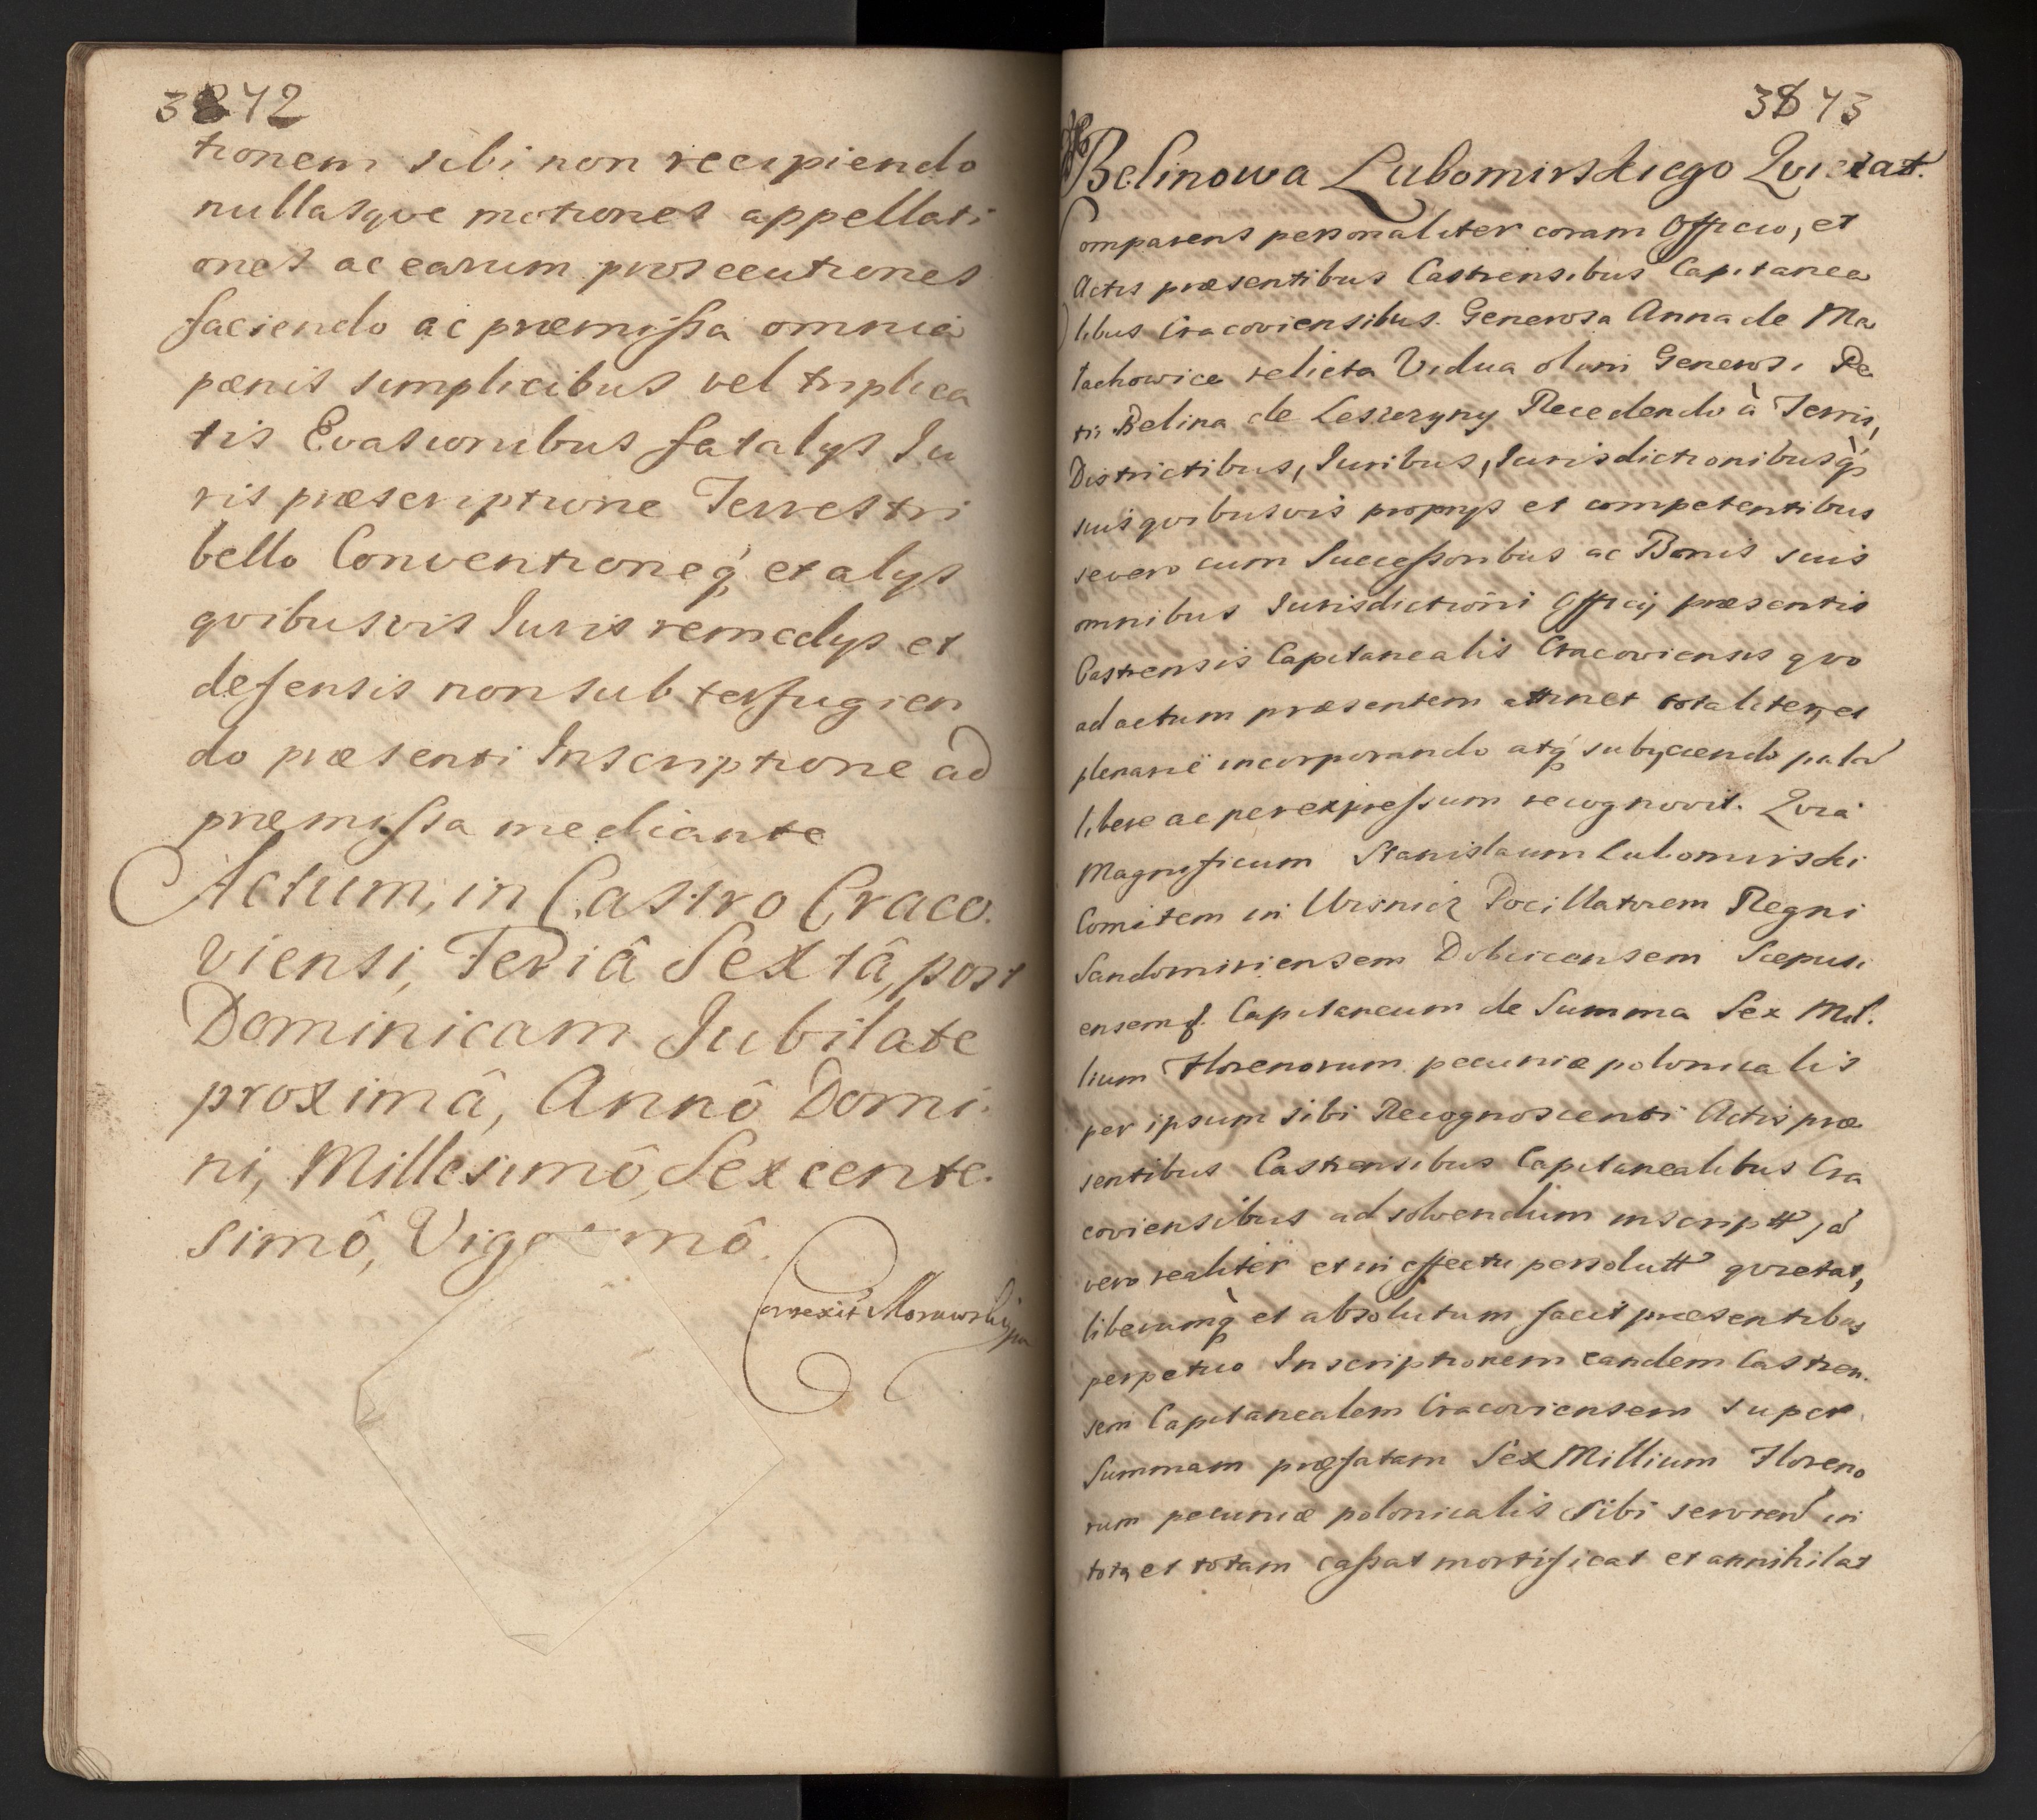 3842
tionem sibi non recipiendo
nullasqve motiones appellati
ones ac earum prosecutiones
faciendo ac præmissa omnia
pænis simplicibus vel triplica
tis Evasionibus fatalys Iu
ris præscriptione Terrestri
bello Conventioneq́ et alys
qvibusvis Iuris remedys et
defensis non subterfugien
do præsenti Inscriptione ad
præmissa mediante
Actum, in Castro Craco.
viensi, Feriâ Sextâ, post
Dominicam Iubilate
proximâ, Annô Domi.
ni, Millesimô, Sexcente.
simô, Vig mô.
Correxit Morawski
3843
Belinowa Lubomirskiego Qvietat.
Comparens personaliter coram Officio, et
Actis præsentibus Castrensibus Capitanea
libus Cracoviensibus. Generosa Anna de Ma
łachowice relicta Vidua olim Generosi Pe
tri Belina de Leszczyny Recedendo à Terris,
Districtibus, Iuribus, Iurisdictionibusq̀
suis qvibusvis proprys et competentibus
severo cum Successoribus ac Bonis suis
omnibus Iurisdictioni Officij præsentis
Castrensis Capitanealis Cracoviensis qvo
ad actum præsentem attinet totaliter, et
plenariè incorporando atq́ subyciendo palā
libere ac per expressum recognovit. Qvia
Magnificum Stanislaum Lubomirski
Comitem in Wisnicz Pocillatorem Regni
Sandomiriensem Dobcicensem Scepusi
ensemq. Capitaneum de Summa Sex Mil.
lium Florenorum pecuniæ polonicalis
per ipsum sibi Recognoscenti Actis præ
sentibus Castrensibus Capitanealibus Cra
coviensibus ad solvendum inscriptt jā
vero realiter et in effectu persolutt qvietat,
liberumq̀ et absolutum facit præsentibus
perpetuo Inscriptionem eandem Castren.
sem Capitanealem Cracoviensem super
Summam præfatam Sex Millium Floreno
rum pecuniæ polonicalis sibi servien in
toto et totam cassat mortificat et annihilat